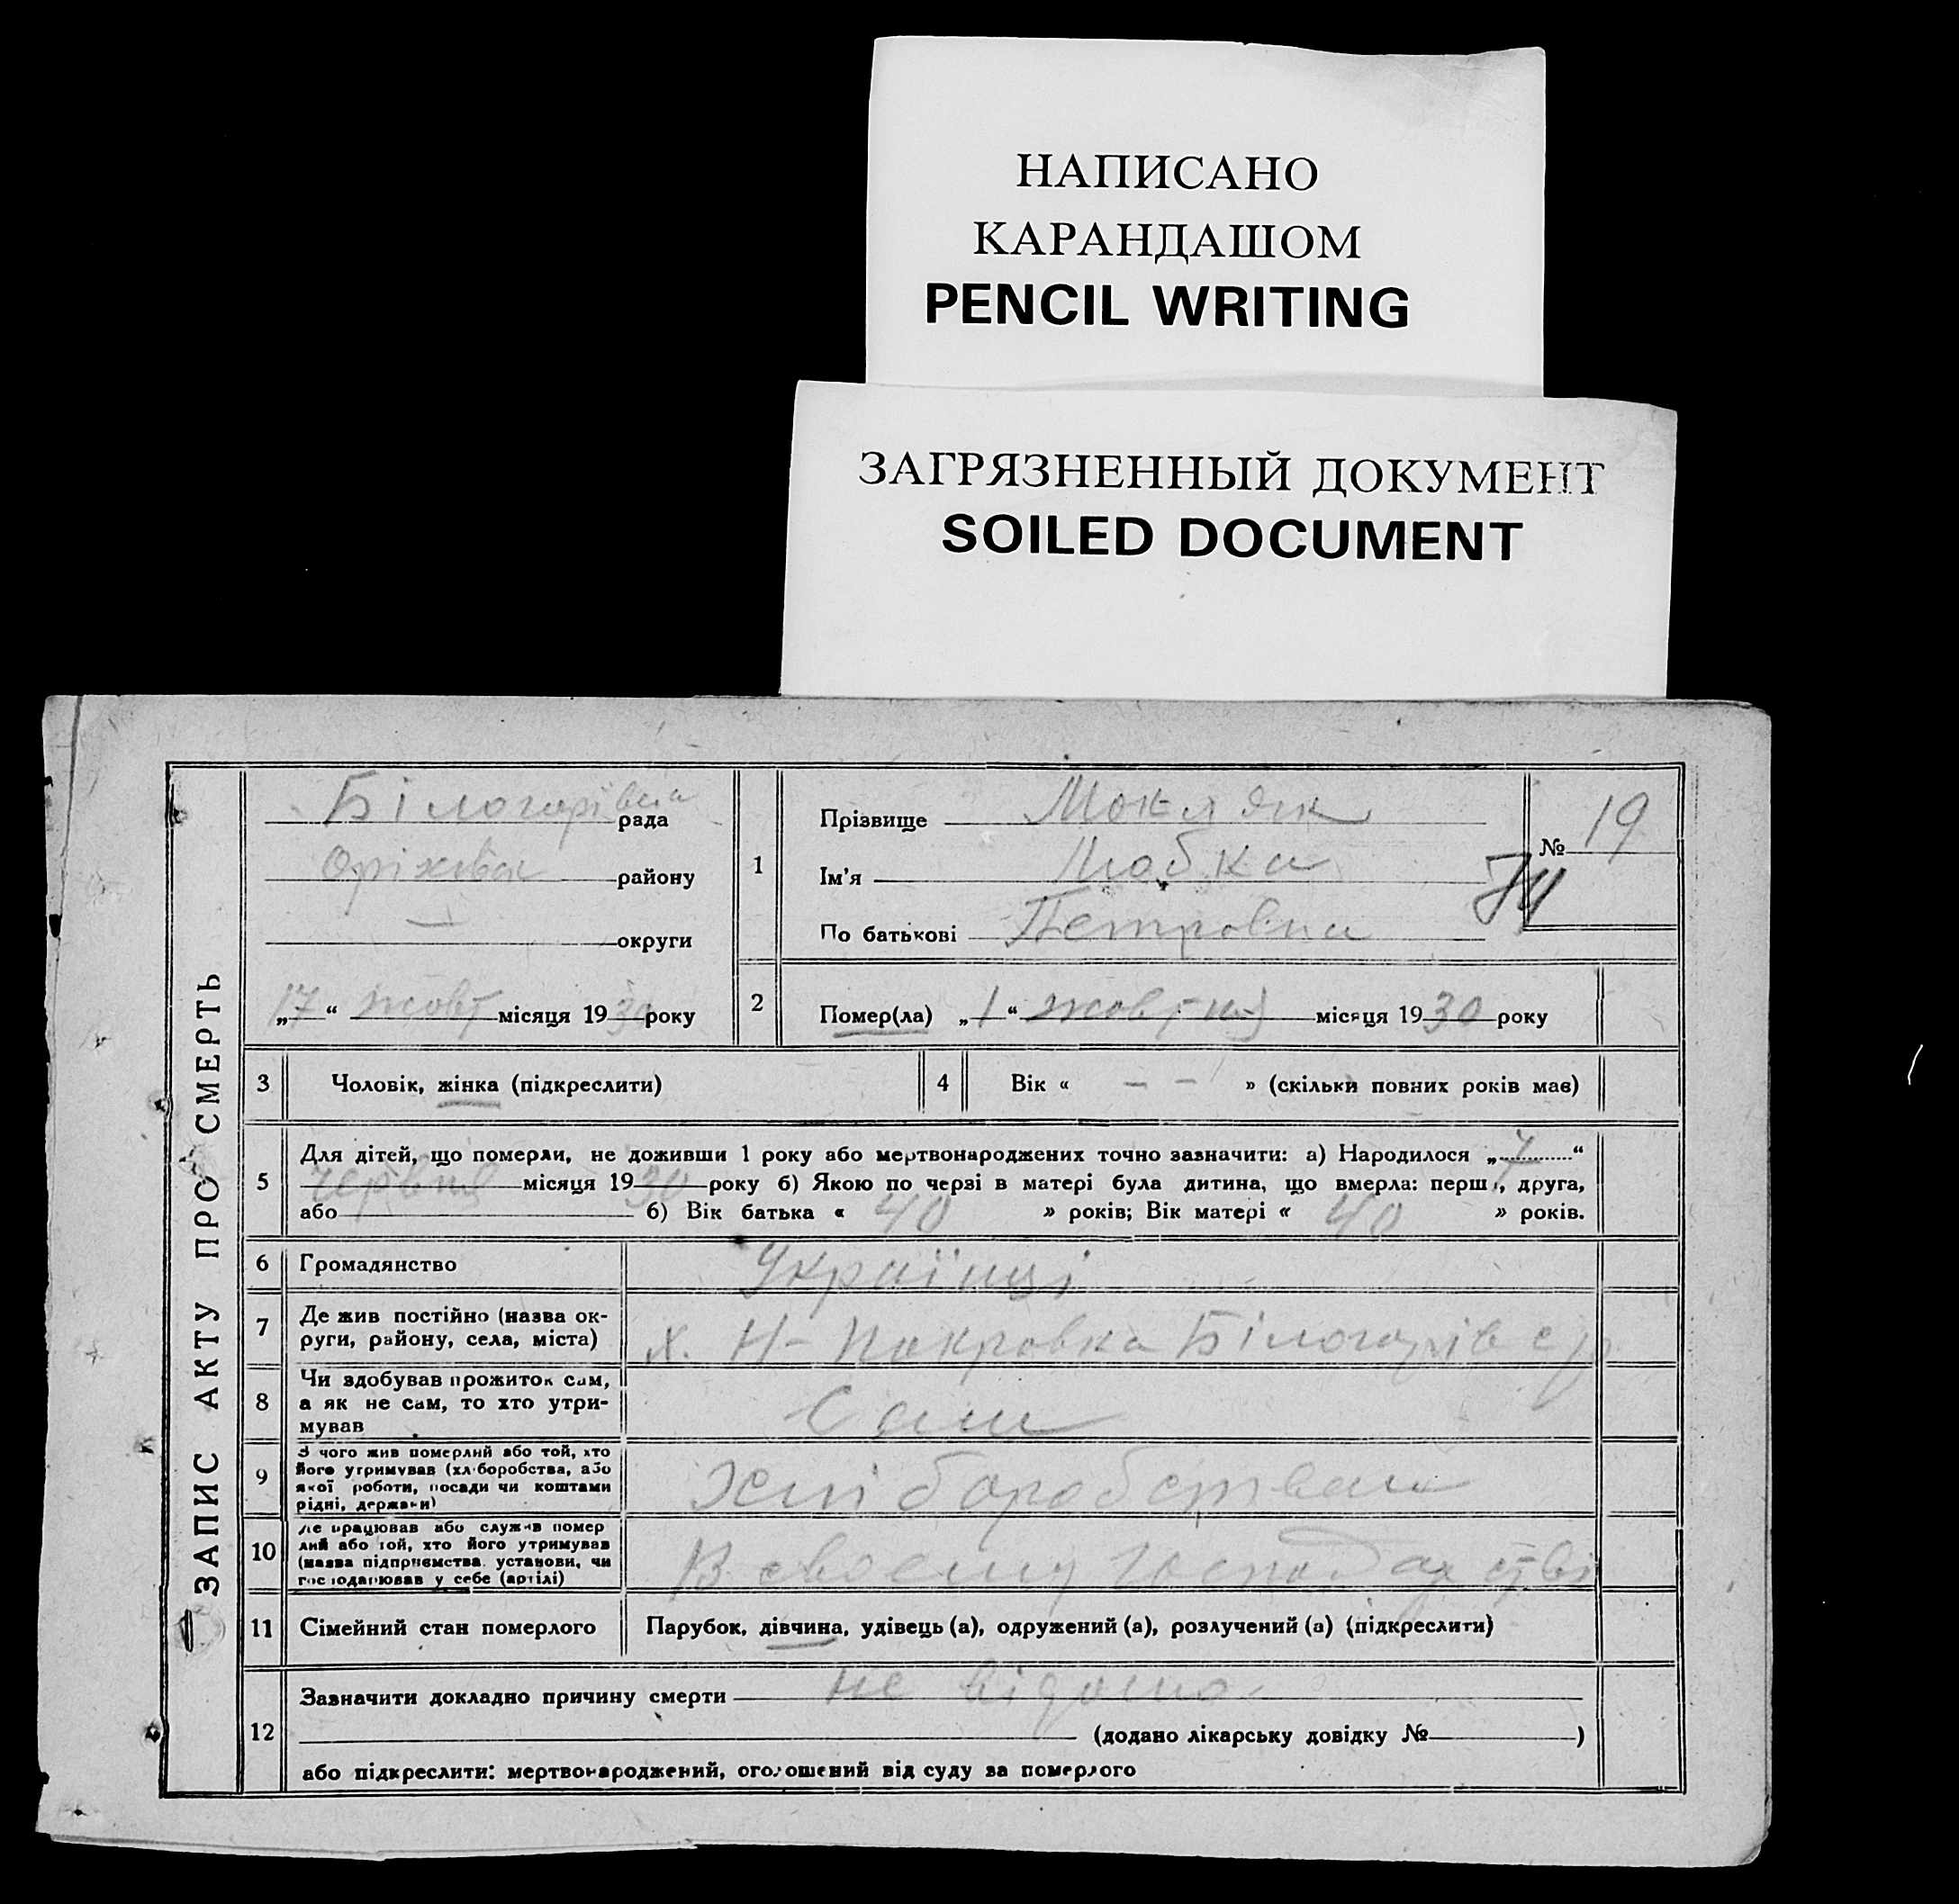 НАПИСАНО
КАРАНДАШОМ
PENCIL WRITING
ЗАГРЯЗНЕННЫЙ ДОКУМЕНТ
SOILED DOCUMENT
ЗАПИС АКТУ ПРО СМЕРТЬ
Білогорівська рада
Оріхівськ району
— округи
„17“ жовт місяця 1930 року
1
Прізвище Мокляк
Ім'я Любка
По батькові Петровна
№ 19
74
2
Помер(ла) „1“ жовтня місяця 1930 року
3 Чоловік, жінка (підкреслити)
4 Вік « — — » (скільки повних років має)
5
Для дітей, що померли, не доживши 1 року або мертвонароджених точно зазначити: а) Народилося „7“
червня місяця 1930 року б) Якою по черзі в матері була дитина, що вмерла: перша, друга,
або б) Вік батька « 40 » років; Вік матері « 40 » років.
6 Громадянство Українці
7 Де жив постійно (назва ок-
руги, району, села, міста)
х. Н-Покровка Білогорів с/р
8 Чи здобував прожиток сам,
а як не сам, то хто утри-
мував
Сам
9 З чого жив померлий або той, хто
його утримував (хліборобства, або
якої роботи, посади чи коштами
рідні, держави)
Хліборобством
10 Де працював або служив помер
лий або той, хто його утримував
(назва підприємства, установи, чи
господарював у себе (артілі)
В своєму господарстві
11 Сімейний стан померлого Парубок, дівчина, удівець (а), одружений (а), розлучений (а) (підкреслити)
12
Зазначити докладно причину смерти не відомо.
(додано лікарську довідку № )
або підкреслити: мертвонароджений, оголошений від суду за померлого